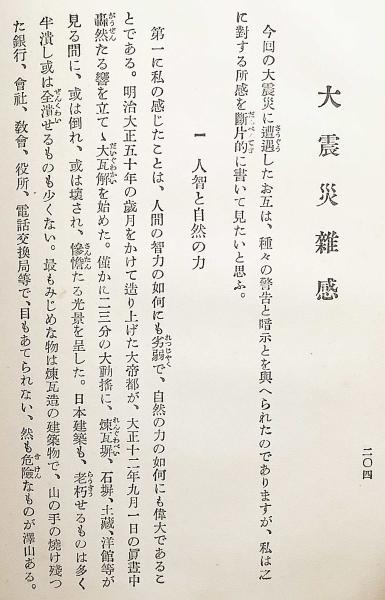 大震災雜感
今回の大震災に遭遇したお互は、種々の警告と暗示とを與へられたのでありますが、私は之
に對する所感を斷片的に書いて見たいと思ふ。
一 人智と自然の力
第一に私の感じたことは、人間の智力の如何にも劣弱で、自然の力の如何にも偉大であるこ
とである。明治大正五十年の歲月をかけて造り上げた大帝都が、大正十二年九月一日の眞晝中
轟然たる響を立てゝ大瓦解を始めた。僅かに二三分の大動搖に、煉瓦塀、石塀、土藏、洋館等が
見る間に、或は倒れ、或は壞され、慘憺たる光景を呈した。日本建築も、老朽せるものは多く
半潰し或は全潰せるものも少くない。最もみじめな物は煉瓦造の建築物で、山の手の燒け殘つ
た銀行、會社、敎會、役所、電話交換局等で、目もあてられない、然も危險なものが澤山ある。
二〇四